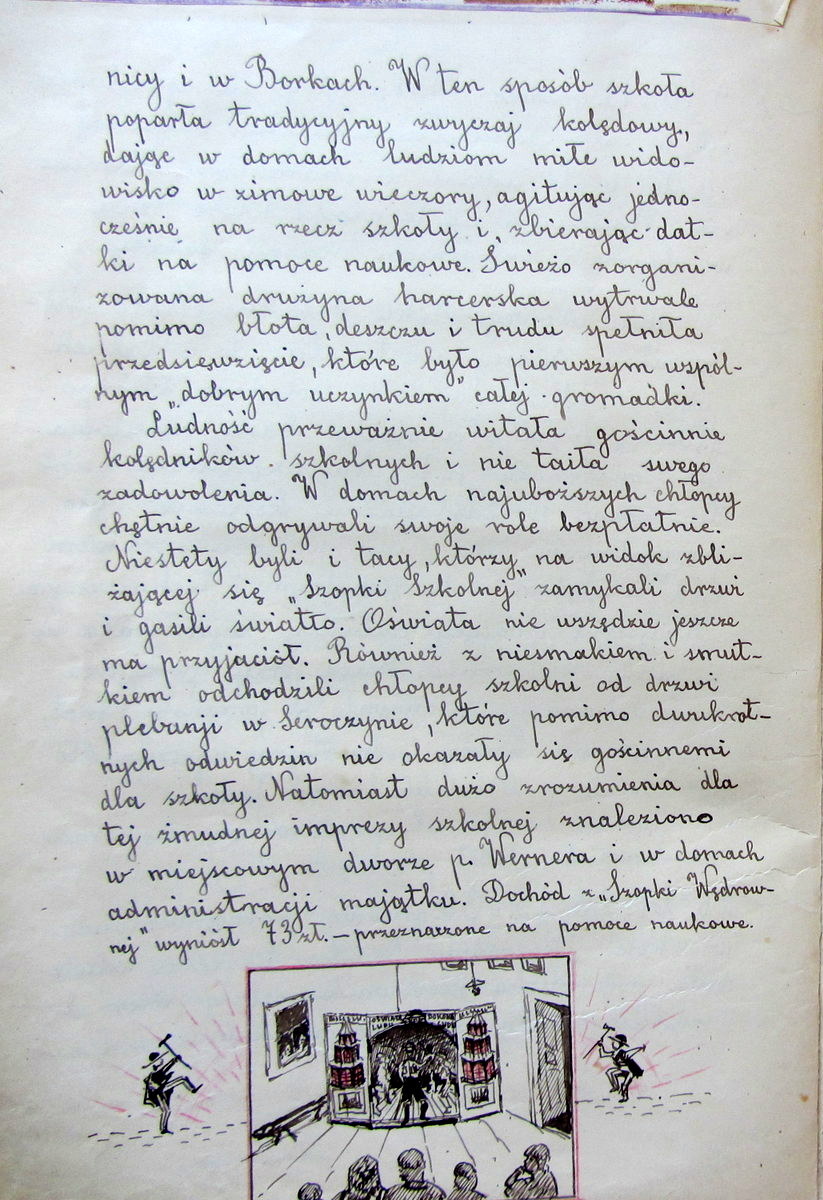 nicy i w Borkach. W ten sposób szkoła
poparła tradycyjny zwyczaj kolędowy,
dając w domach ludziom miłe wido-
wisko w zimowe wieczory, agitując jedno-
cześnie na rzecz szkoły i zbierając dat-
ki na pomoce naukowe. Świeżo zorgani-
zowana drużyna harcerska wytrwale
pomimo błota, deszczu i trudu spełniła
przedsięwzięcie, które było pierwszym wspól-
nym „dobrym uczynkiem" całej gromadki.
Ludność przeważnie witała gościnnie
kolędników szkolnych i nie taiła swego
zadowolenia. W domach najuboższych chłopcy
chętnie odgrywali swoje role bezpłatnie.
Niestety byli i tacy, którzy na widok zbli-
żającej się „Szopki Szkolnej" zamykali drzwi
i gasili światło. Oświata nie wszędzie jeszcze
ma przyjaciół. Również z niesmakiem i smut-
kiem odchodzili chłopcy szkolni od drzwi
plebanji w Seroczynie, które pomimo dwukrot-
nych odwiedzin nie okazały się gościnnemi
dla szkoły. Natomiast dużo zrozumienia dla
tej żmudnej imprezy szkolnej znaleziono
w miejscowym dworze p. Wernera i w domach
administracji majątku. Dochód z „Szopki Wędrow-
nej" wyniósł 73 zł. – przeznaczone na pomoce naukowe.
OŚWIATA
LUDU
DOKONA
CUDU